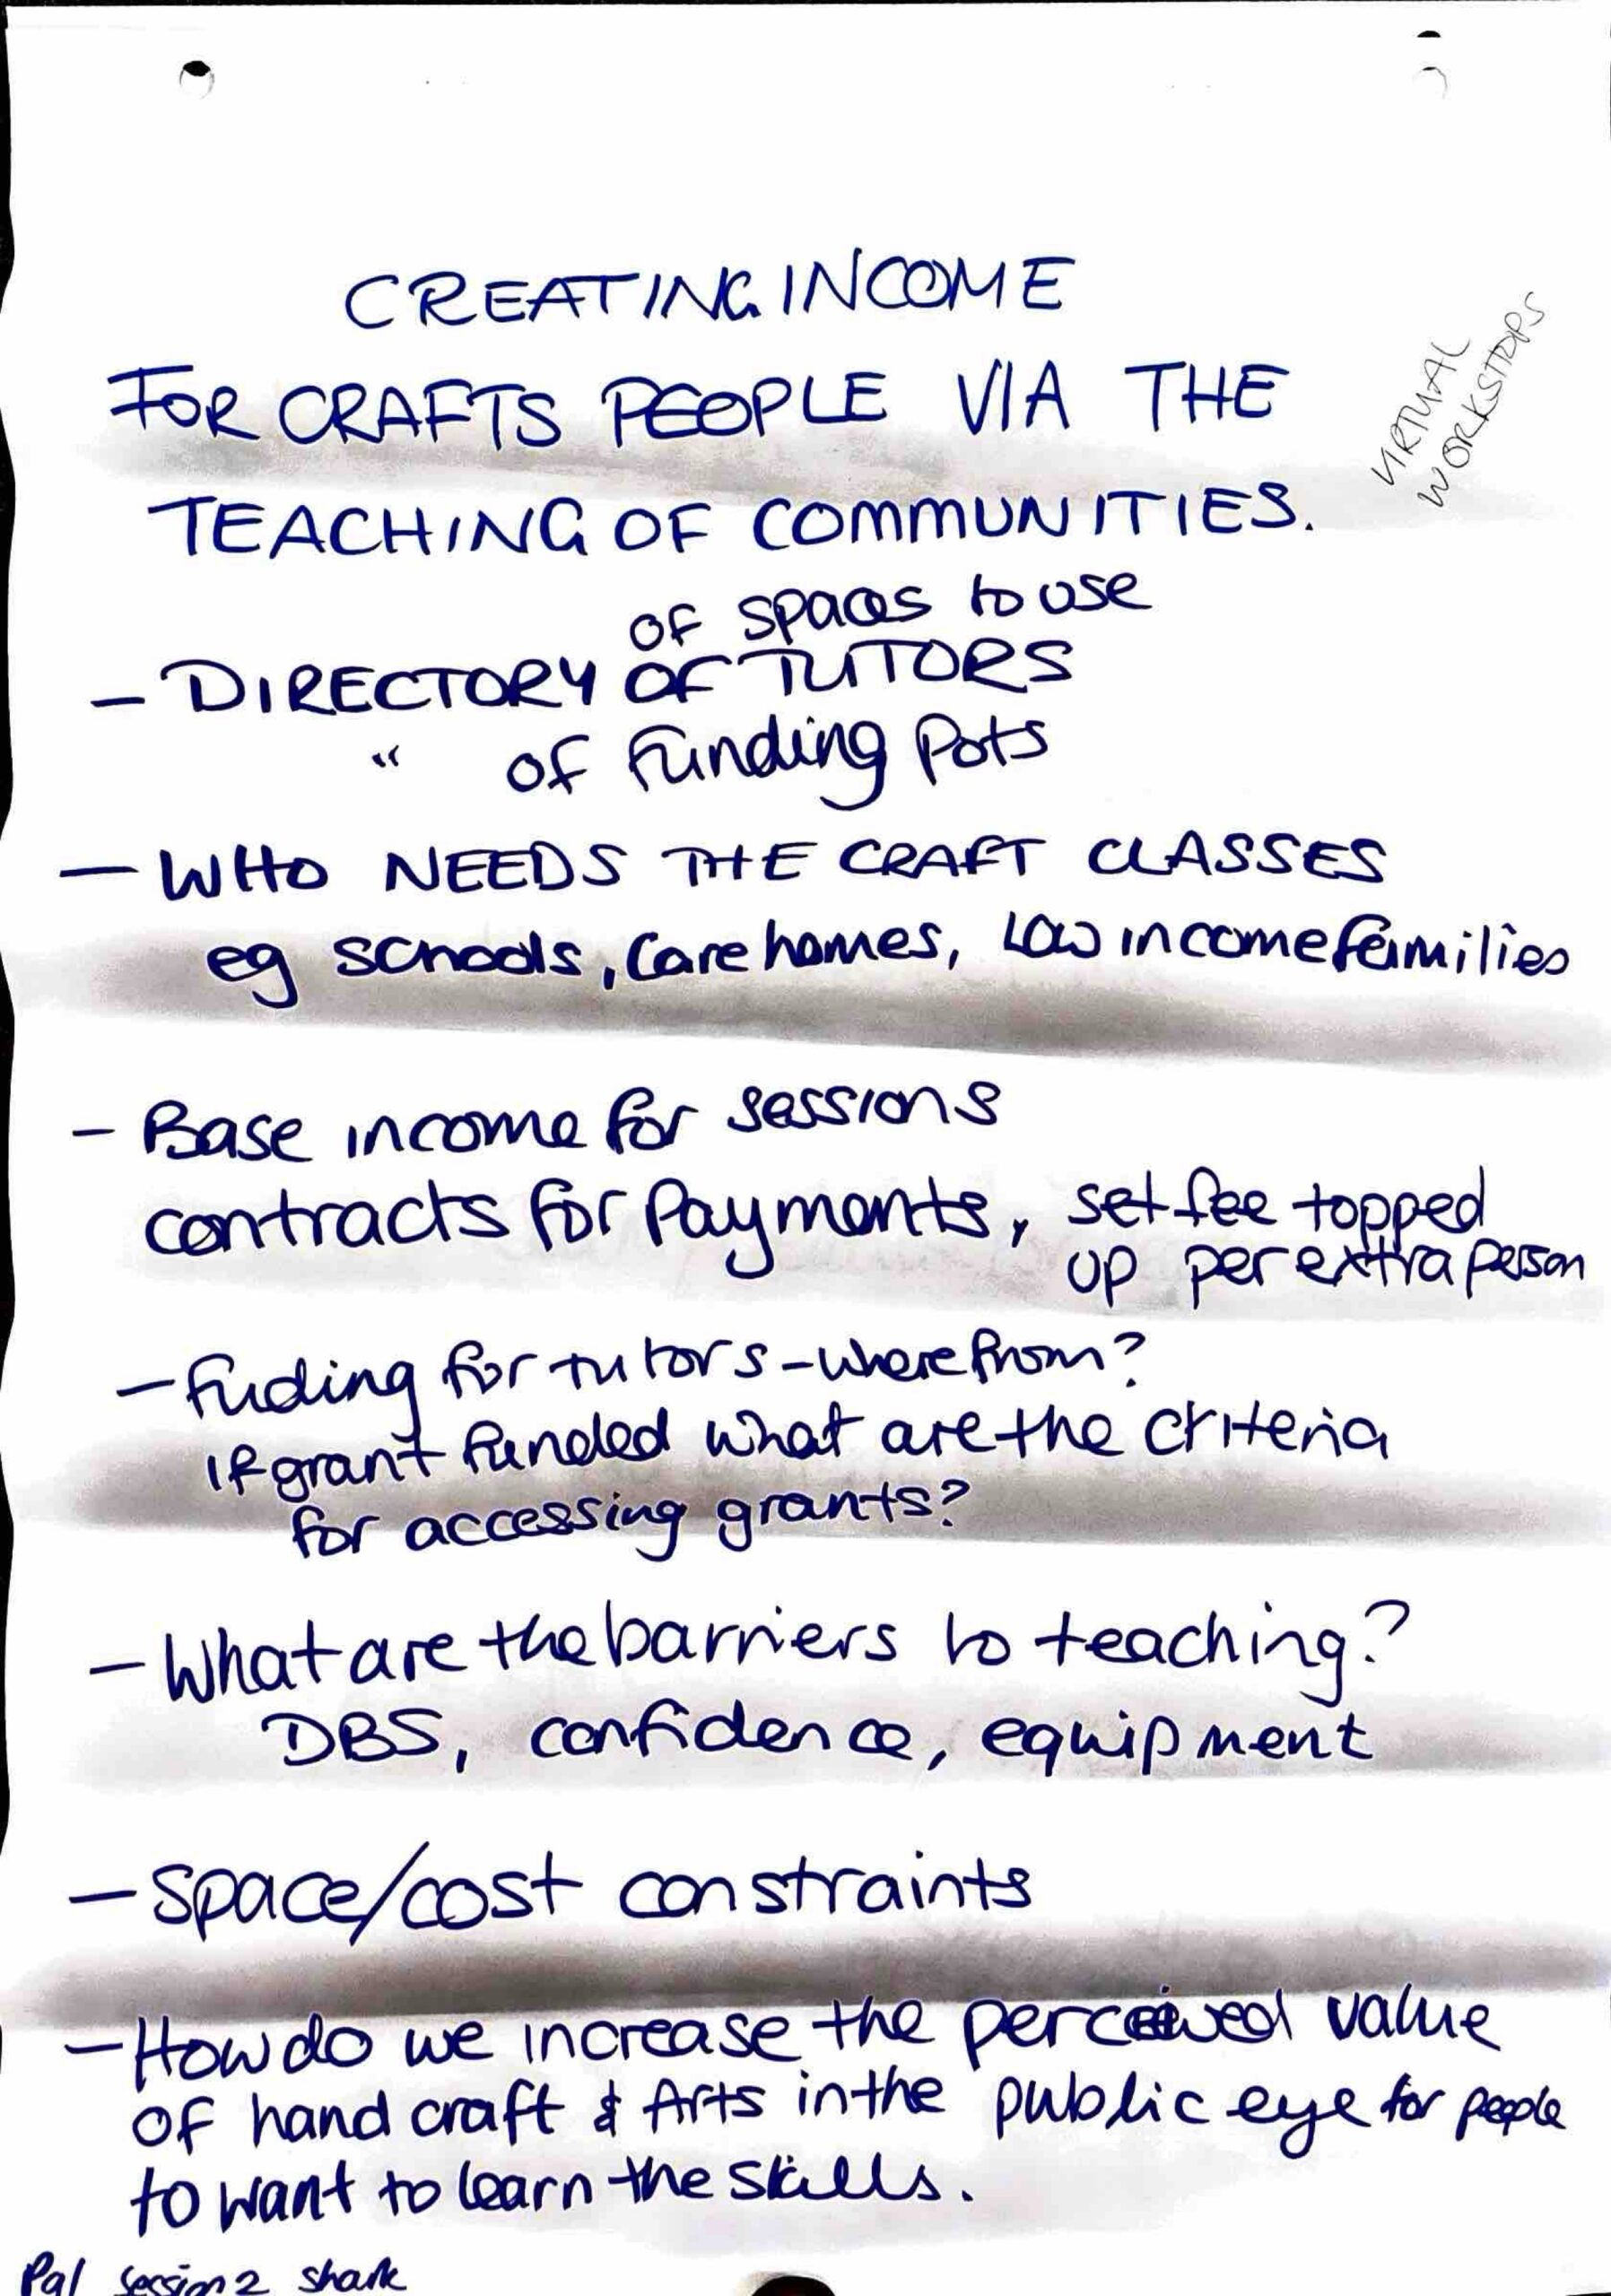 CREATING INCOME
FOR CRAFTS PEOPLE VIA THE
TEACHING OF COMMUNITIES.
VIRTUAL
WORKSHOPS
of spaces to use
- DIRECTORY OF TUTORS
" of Funding Pots
- WHO NEEDS THE CRAFT CLASSES
eg schools, Care homes, Low income families
- Base income for sessions
contracts for Payments, set fee topped
up per extra person
- fuding for tutors - where from?
If grant funded what are the criteria
for accessing grants?
- What are the barriers to teaching?
DBS, confidence, equipment
- Space/cost constraints
- How do we increase the perceived value
of hand craft & Arts in the public eye for people
to want to learn the skills.
Pg1 Session 2 shark